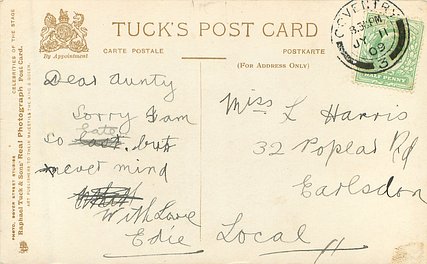 TUCK'S POST CARD
CARTE POSTALE
POSTKARTE
(FOR ADDRESS ONLY)
By Appointment
CELEBRITIES OF THE STAGE
Raphael Tuck & Sons' Real Photograph Post Card.
ART PUBLISHERS TO THEIR MAJESTIES THE KING & QUEEN.
COVENTRY
8.30 PM
11
09
3
HALF PENNY
Dear Aunty
Sorry I am
so late. but
never mind
With Love
Edie
Miss L Harris
32 Poplar Rd
Earlsdon
Local